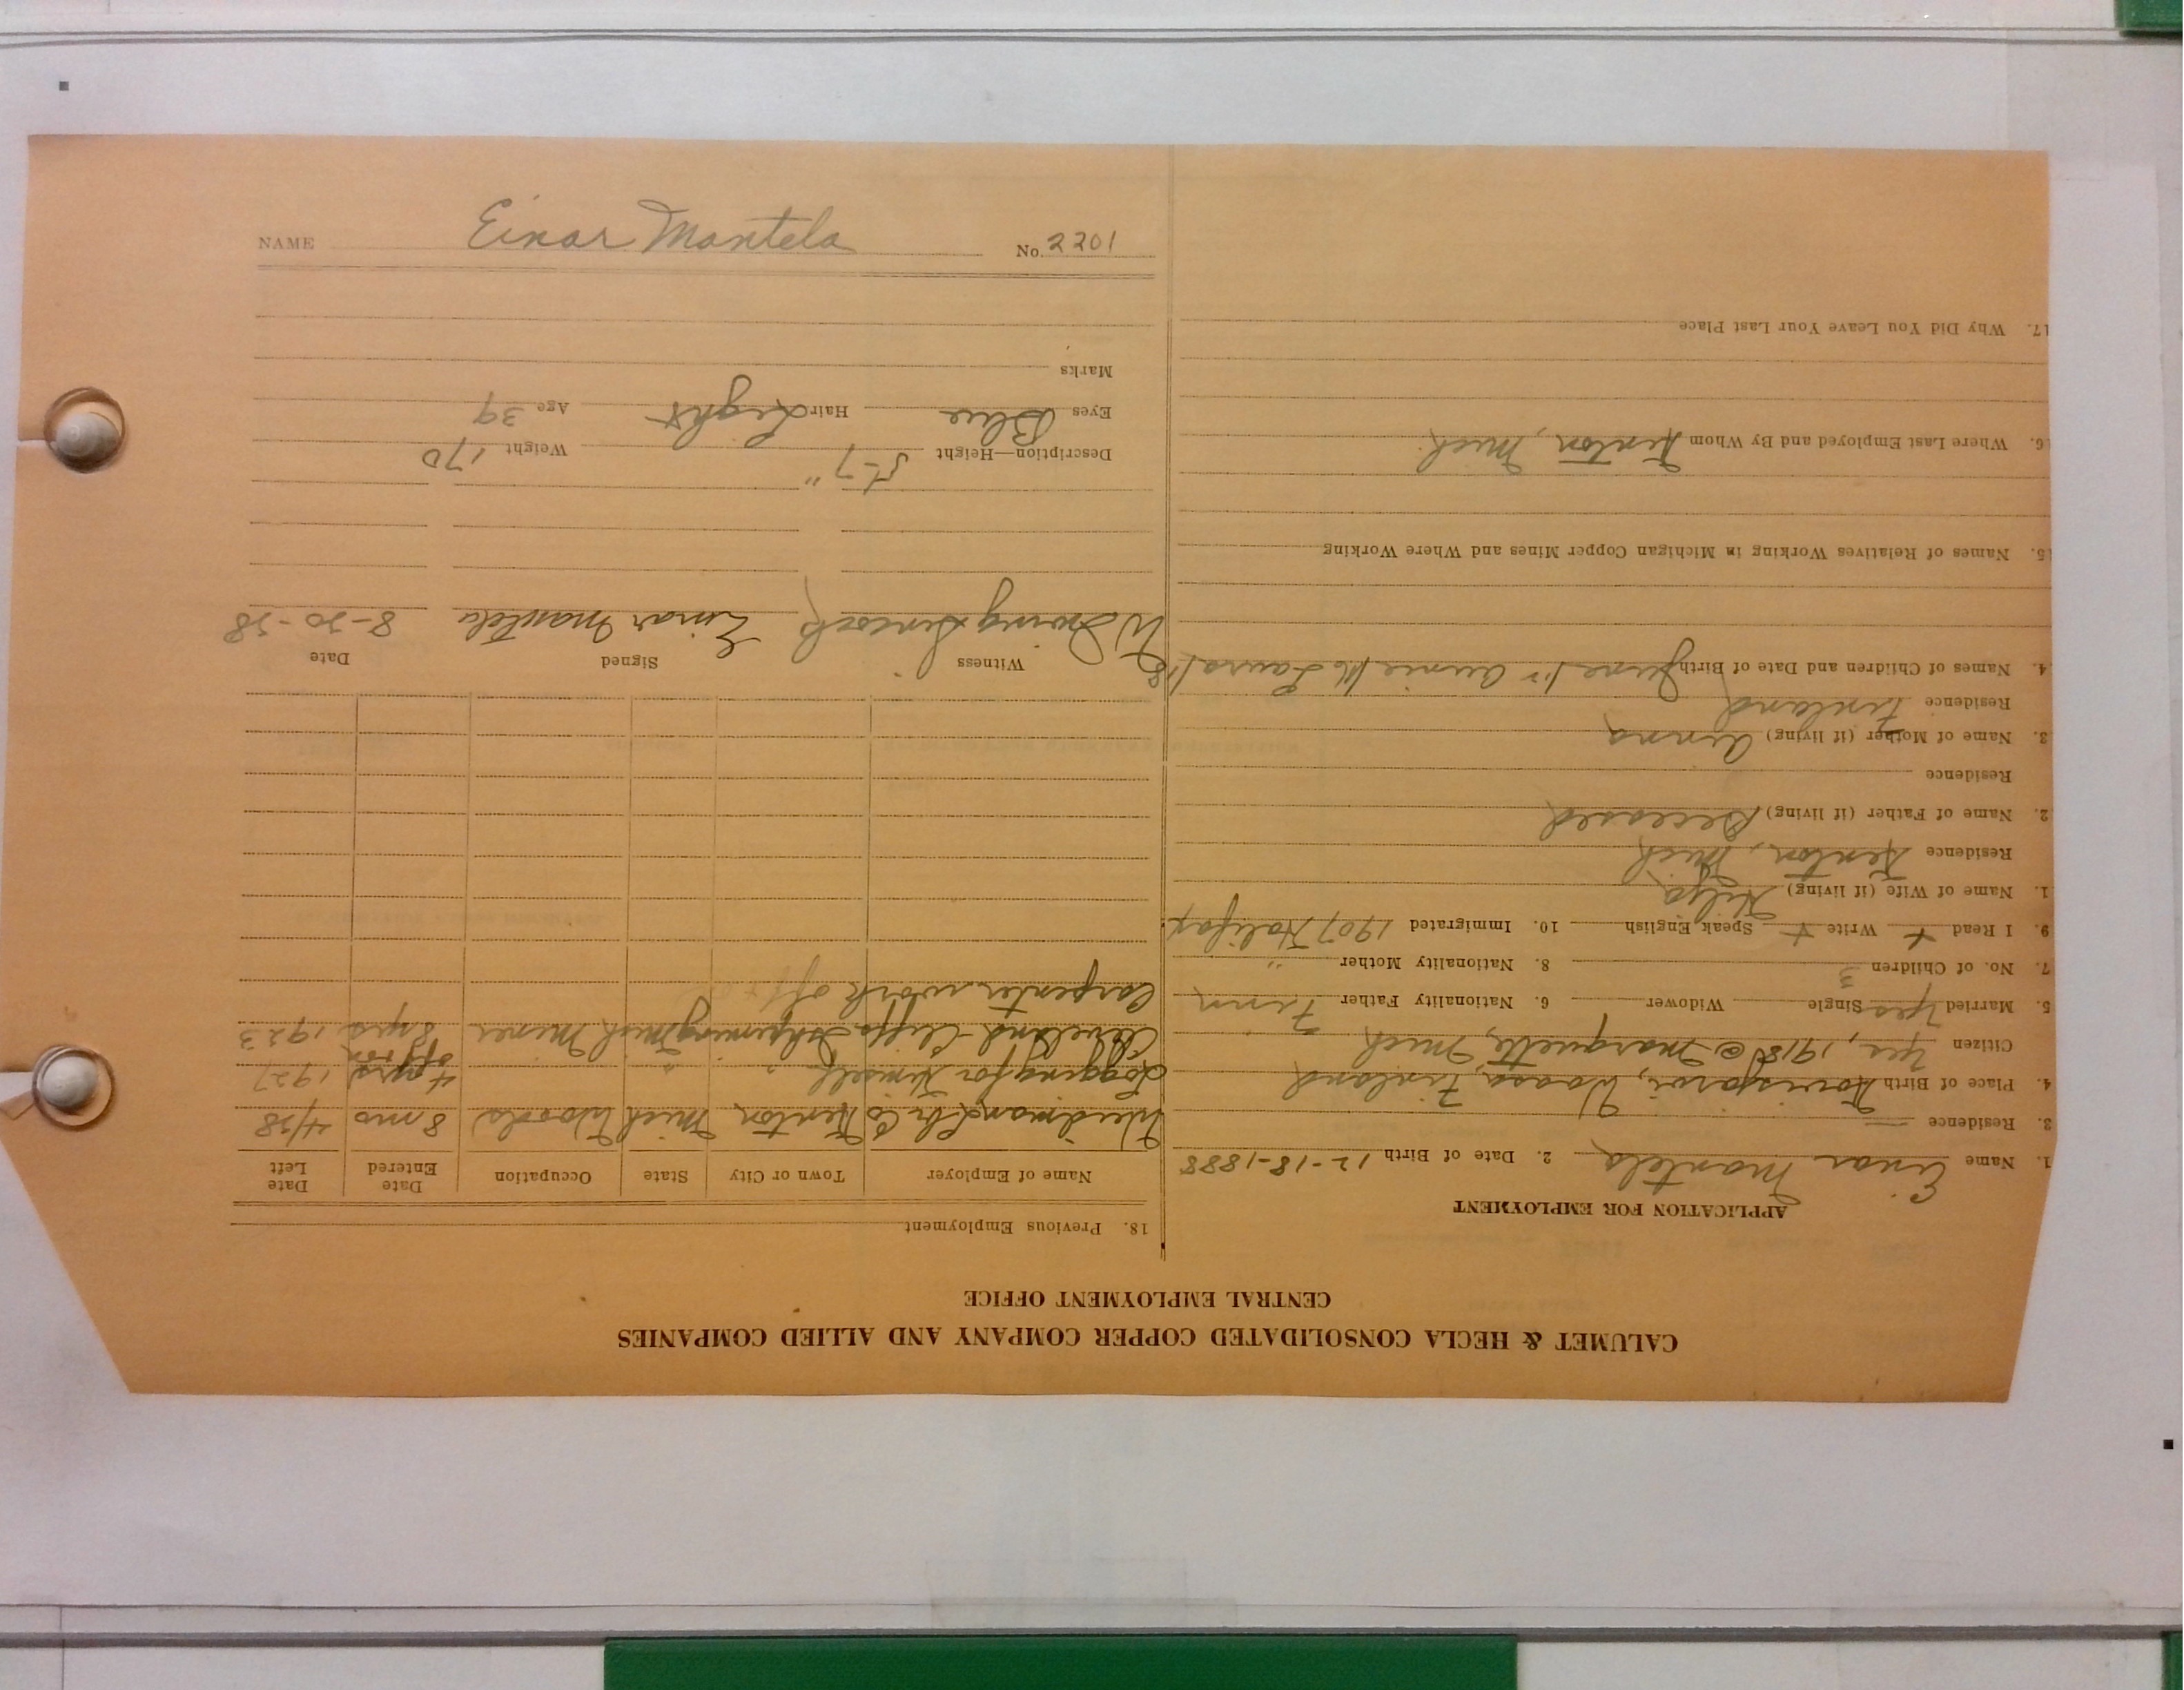 NAME Einar Mantela No. 2201
CALUMET & HECLA CONSOLIDATED COPPER COMPANY AND ALLIED COMPANIES
CENTRAL EMPLOYMENT OFFICE
APPLICATION FOR EMPLOYMENT
1. Name Einar Mantela 2. Date of Birth 12-18-1888
3. Residence
4. Place of Birth Waasa, Finland
Citizen Yes, 1918 @ Marquette, Mich
5. Married Yes Single Widower 6. Nationality Father Finn
7. No. of Children 3 8. Nationality Mother "
9. I Read + Write + Speak English 10. Immigrated 1907 Halifax
1. Name of Wife (if living) Hilja
Residence Kenton, Mich
2. Name of Father (if living) Deceased
Residence
3. Name of Mother (if living) Anna
Residence Finland
4. Names of Children and Date of Birth June Annie 16 Laura 18
5. Names of Relatives Working in Michigan Copper Mines and Where Working
6. Where Last Employed and By Whom Kenton, Mich.
17. Why Did You Leave Your Last Place
18. Previous Employment
Name of Employer Town or City State Occupation Date Entered Date Left
Kenton Mich Woods 8 mo 4/38
Logging for Himself " " 4 yrs off & on 1927
Cleveland-Cliffs Ishpeming Mich Miner 8 yrs 1923
Carpenter work off
Witness Signed Date
Einar Mantela 8-30-38
Description—Height 5-7" Weight 170
Eyes Blue Hair Light Age 39
Marks